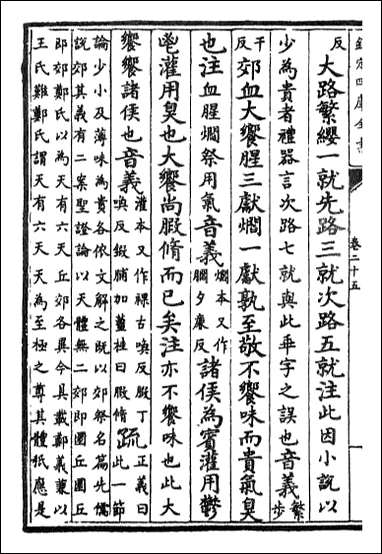 欽定四庫全書
卷二十五
反大路繁纓一就先路三就次路五就注此因小說以
少為貴者禮器言次路七就與此乖字之誤也音義繁步
干反郊血大饗腥三獻爓一獻孰至敬不饗味而貴氣臭
也注血腥爓祭用氣音義爓本又作膶夕廉反諸侯為賓灌用鬱
鬯灌用臭也大饗尚腶脩而已矣注亦不饗味也此大
饗饗諸侯也音義灌本又作祼古喚反腶丁喚反鍛脯加薑桂曰腶脩疏正義曰此一節
論少小及薄味為貴各依文解之既以郊祭名篇先儒
說郊其義有二案聖證論以天體無二郊即圜丘圜丘
即郊鄭氏以為天有六天丘郊各異今具載鄭義兼以
王氏難鄭氏謂天有六天天為至極之尊其體秪應是